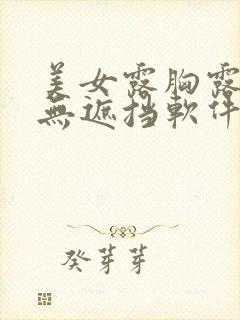 美女露胸露
無遮挡軟件
癸芽芽